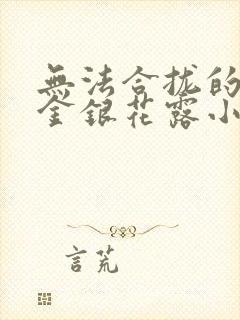 無法合拢的
金銀花露小
言荒